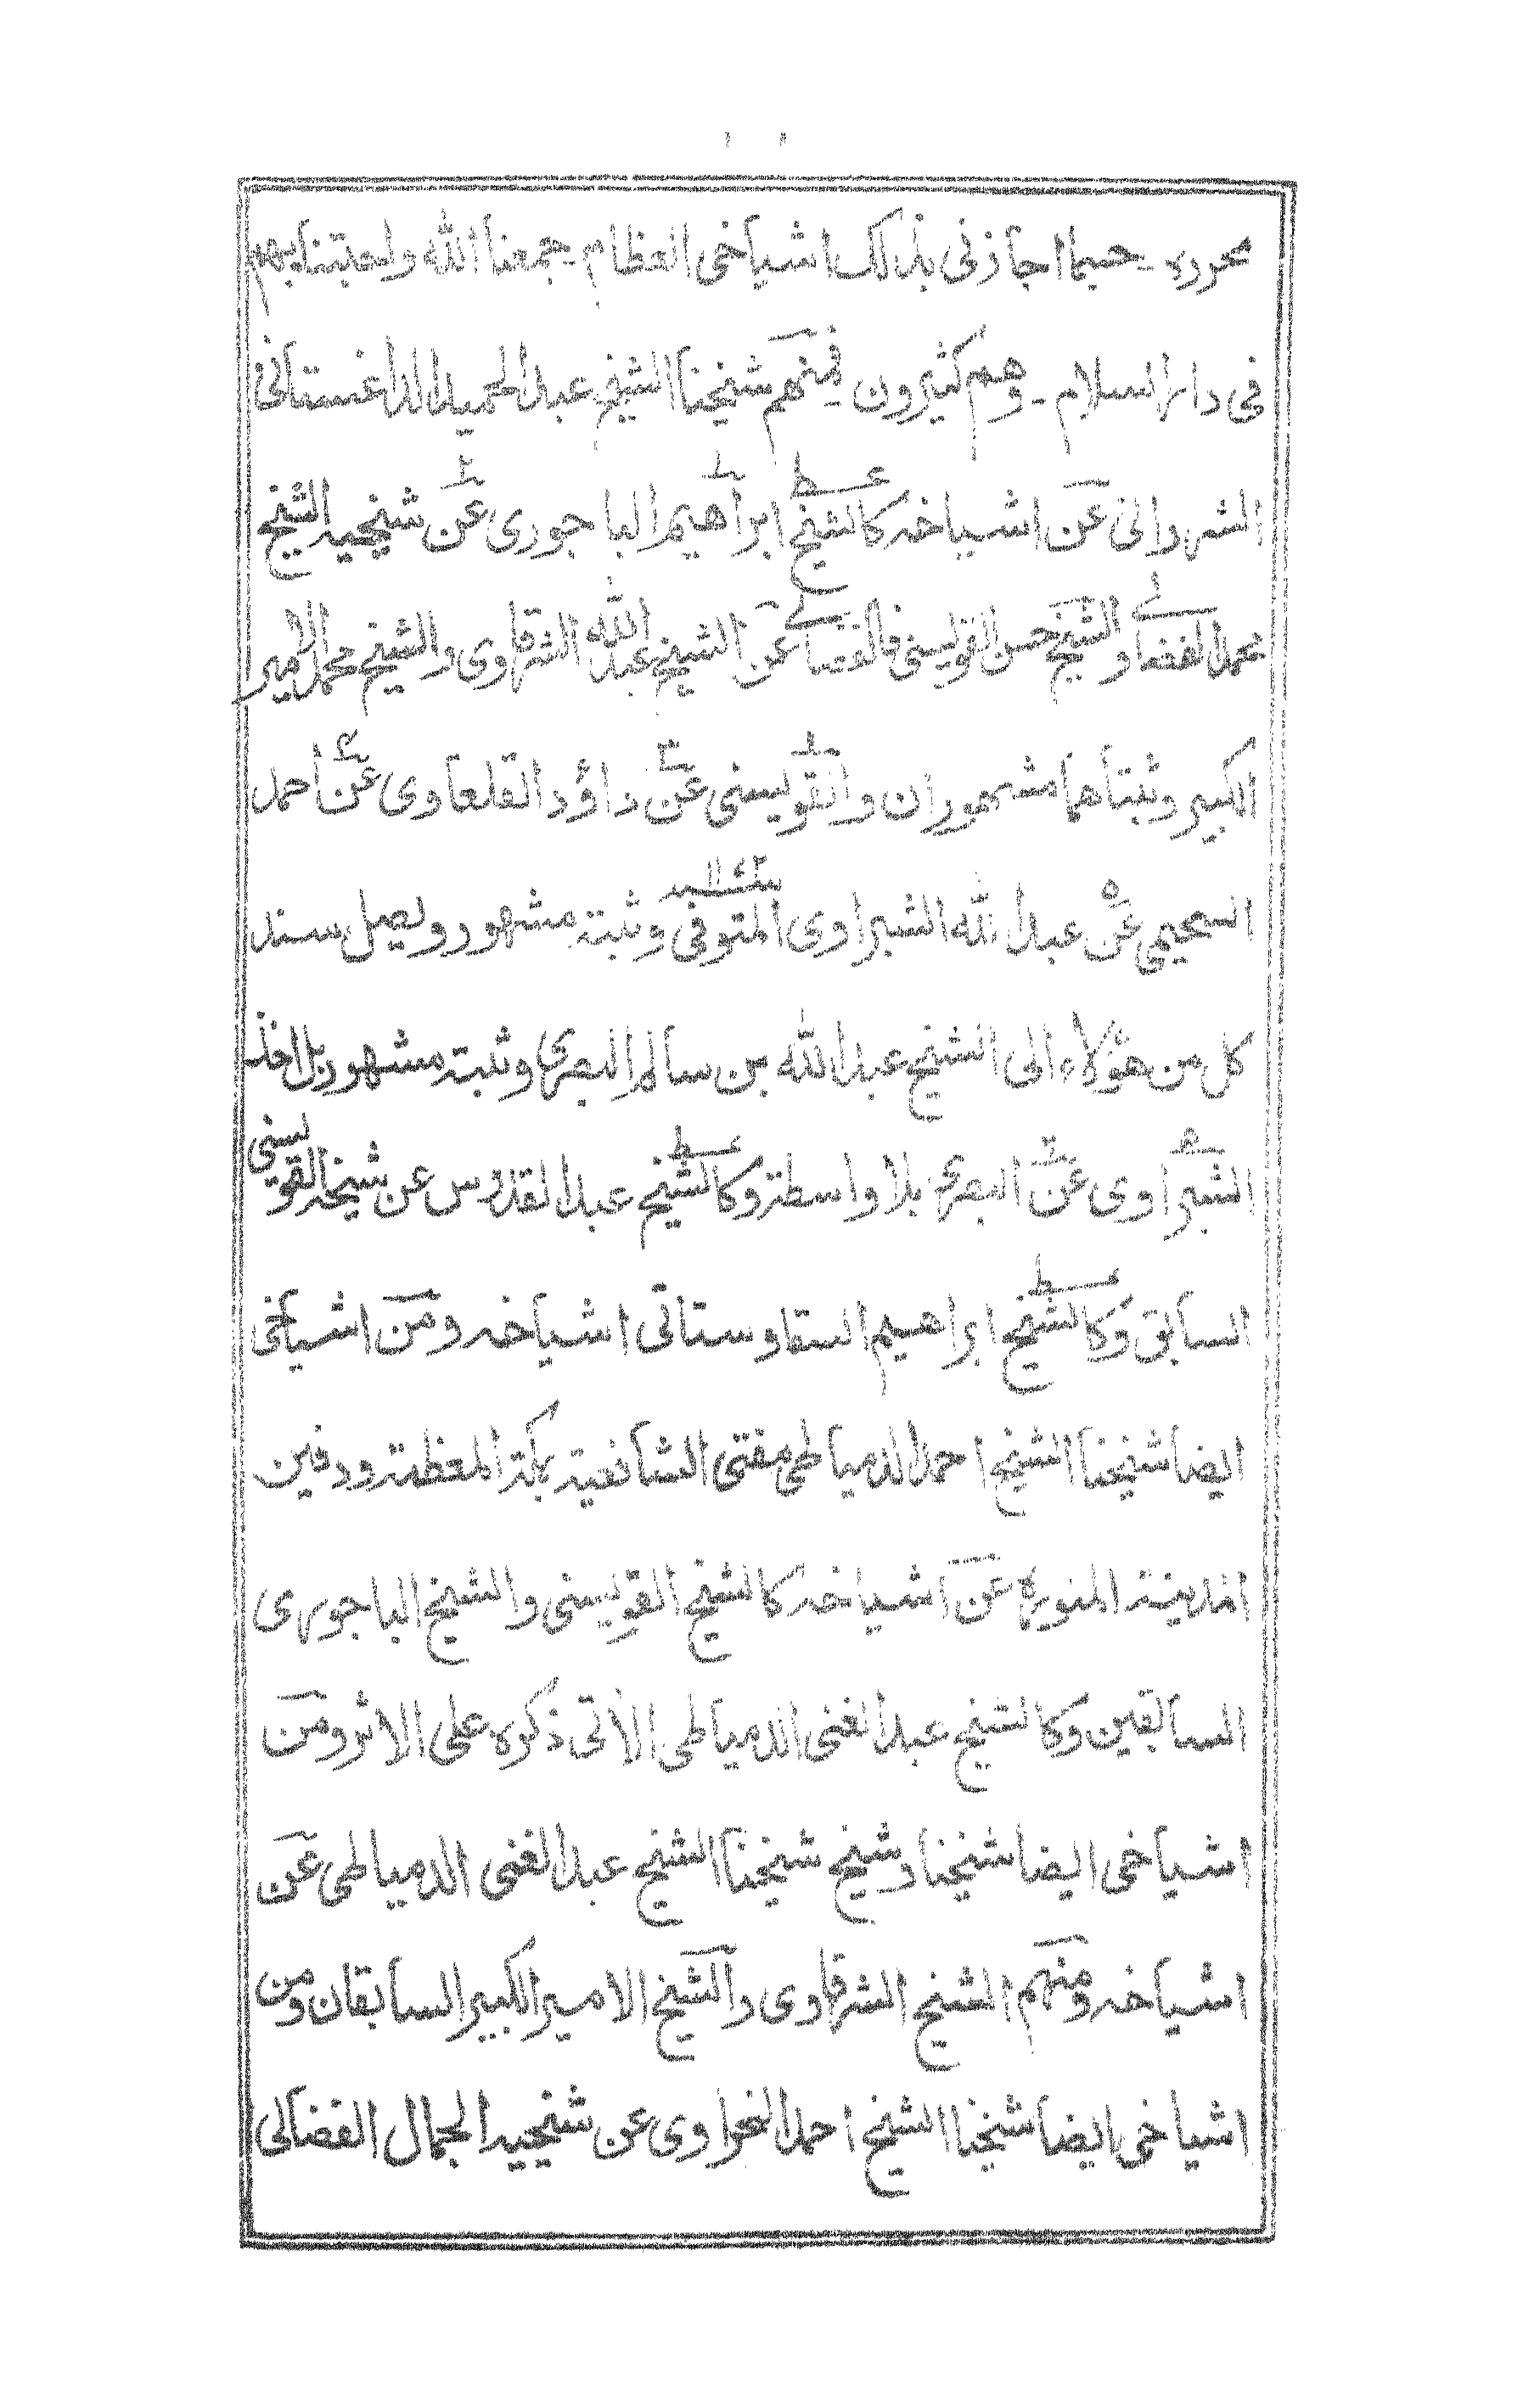 محررہ۔ حسبما اجازنی بذالک اشیاخی العظام۔ جمعنا الله واحبتنا بهم
فی دار السلام۔ وهم کثیرون۔ فمنهم شیخنا الشیخ عبد الحمید الداغستانی
الشروانی عن اشیاخه کالشیخ ابراهیم الباجوری عن شیخیه الشیخ
محمد الفضالے والشیخ حسن القویسنی فالفضالے عن الشیخ عبد الله الشرقاوی والشیخ محمد الامیر
الکبیر وثبتاهما مشهوران والقویسنی عن داؤد القلعاوی عن احمد
السحیمی عن عبد الله الشبراوی المتوفی وثبتہ مشهور ویصل سند
کل من هؤلاء الی الشیخ عبد الله بن سالم البصری وثبتہ مشهور بل اخذ
الشبراوی عن البصری بلا واسطۃ وکالشیخ عبد القدوس عن شیخه القویسنی
السابق وکالشیخ ابراهیم السقا وستاتی اشیاخہ ومن اشیاخی
ایضا شیخنا الشیخ احمد الدمیاطی مفتی الشافعیۃ بمکۃ المعظمۃ ودفین
المدینۃ المنورۃ عن اشیاخہ کالشیخ القویسنی والشیخ الباجوری
السابقین وکالشیخ عبد الغنی الدمیاطی الآتی ذکرہ علی الاثر ومن
اشیاخی ایضا شیخنا وشیخ شیخنا الشیخ عبد الغنی الدمیاطی عن
اشیاخہ ومنهم الشیخ الشرقاوی والشیخ الامیر الکبیر السابقان ومن
اشیاخی ایضا شیخنا الشیخ احمد النحراوی عن شیخیه الجمال الفضالی